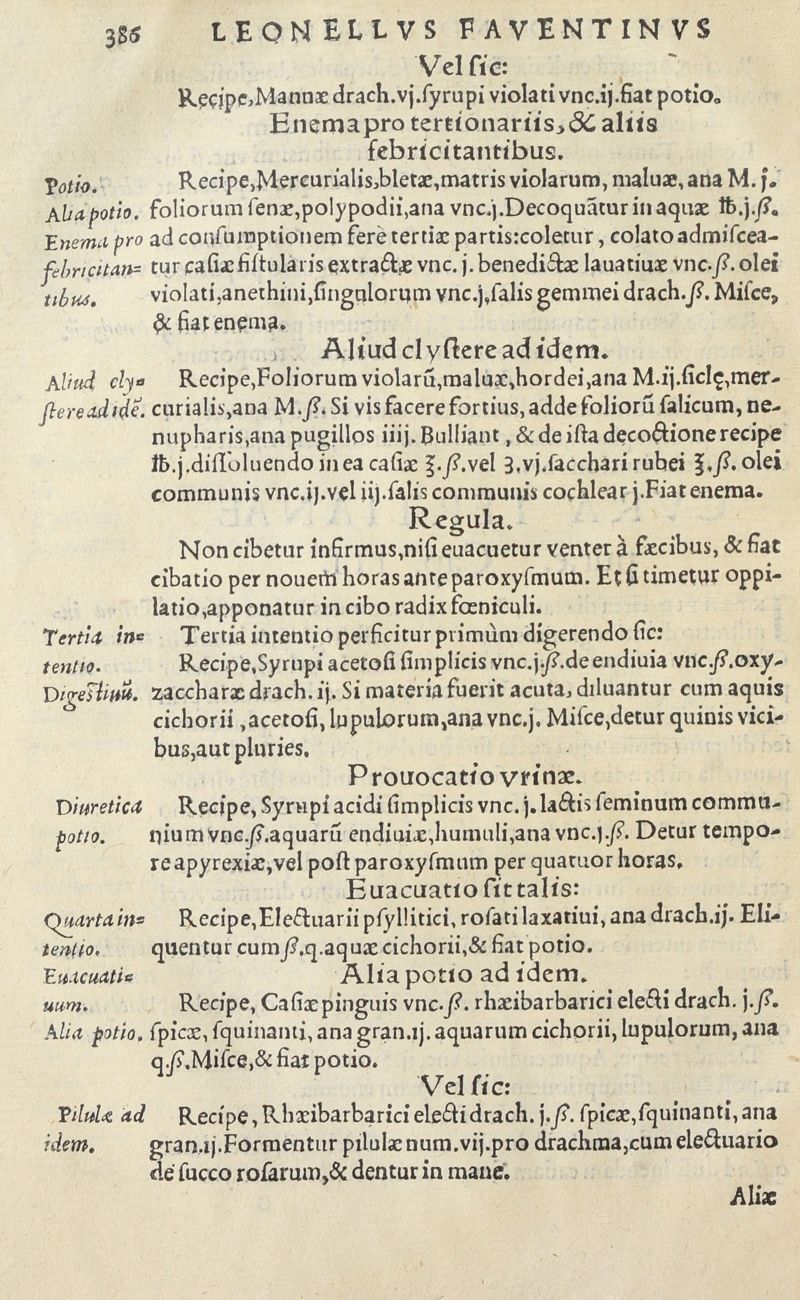 386 LEONELLVS FAVENTINVS
Vel ſic:
Recipe, Mannæ drach.vj.ſyrupi violati vnc.ij.fiat potio.
Enema pro tertionariis, & aliis
febricitantibus.
Potio. Recipe, Mercurialis, bletæ, matris violarum, maluæ, ana M. ſ.
Alia potio. foliorum ſenæ, polypodii, ana vnc.j. Decoquãtur in aquæ ℔.j.ß.
Enema pro ad conſumptionem ferè tertiæ partis: coletur, colato admiſcea-
febricitan= tur caſiæ fiſtularis extractæ vnc. j. benedictæ lauatiuæ vnc.ß. olei
tibus. violati, anethini, ſingulorum vnc.j, ſalis gemmei drach.ß. Miſce,
& fiat enema.
Aliud clyſtere ad idem.
Aliud cly= Recipe, Foliorum violarũ, maluæ, hordei, ana M.ij. ſiclę, mer-
ſtere ad idẽ. curialis, ana M.ß. Si vis facere fortius, adde foliorũ ſalicum, ne-
nupharis, ana pugillos iiij. Bulliant, & de iſta decoctione recipe
℔.j. diſſoluendo in ea caſiæ ℥.ß. vel ʒ.vj. ſacchari rubei ℥.ß. olei
communis vnc.ij. vel iij. ſalis communis cochlear j. Fiat enema.
Regula.
Non cibetur infirmus, niſi euacuetur venter à fæcibus, & fiat
cibatio per nouem horas ante paroxyſmum. Et ſi timetur oppi-
latio, apponatur in cibo radix fœniculi.
Tertia in= Tertia intentio perficitur primùm digerendo ſic:
tentio. Recipe, Syrupi acetoſi ſimplicis vnc.j.ß. de endiuia vnc.ß. oxy-
Digeſtiuũ. zaccharæ drach. ij. Si materia fuerit acuta, diluantur cum aquis
cichorii, acetoſi, lupulorum, ana vnc.j. Miſce, detur quinis vici-
bus, aut pluries.
Prouocatio vrinæ.
Diuretica Recipe, Syrupi acidi ſimplicis vnc. j. lactis ſeminum commu-
potio. nium vnc.ß. aquarũ endiuiæ, humuli, ana vnc.j.ß. Detur tempo-
re apyrexiæ, vel poſt paroxyſmum per quatuor horas.
Euacuatio ſit talis:
Quarta in= Recipe, Electuarii pſyllitici, roſati laxatiui, ana drach.ij. Eli-
tentio. quentur cum ß.q. aquæ cichorii, & fiat potio.
Euacuati= Alia potio ad idem.
uum. Recipe, Caſiæ pinguis vnc.ß. rhæibarbarici electi drach. j.ß.
Alia potio. ſpicæ, ſquinanti, ana gran.ij. aquarum cichorii, lupulorum, ana
q.ß. Miſce, & fiat potio.
Vel ſic:
Pilulæ ad Recipe, Rhæibarbarici electi drach. j.ß. ſpicæ, ſquinanti, ana
idem. gran.ij. Formentur pilulæ num.vij. pro drachma, cum electuario
de ſucco roſarum, & dentur in mane.
Aliæ